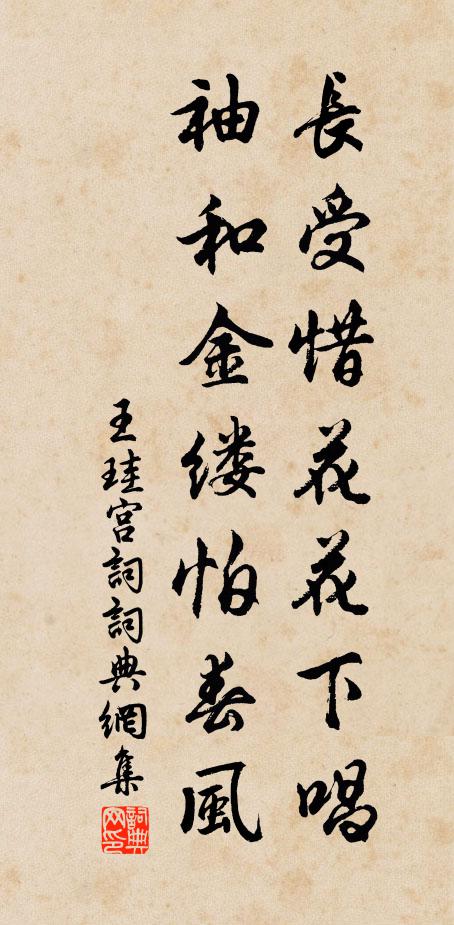 長受惜花花下唱
袖和金缕怕春風
王珪宫詞詞典網集
詞典网印